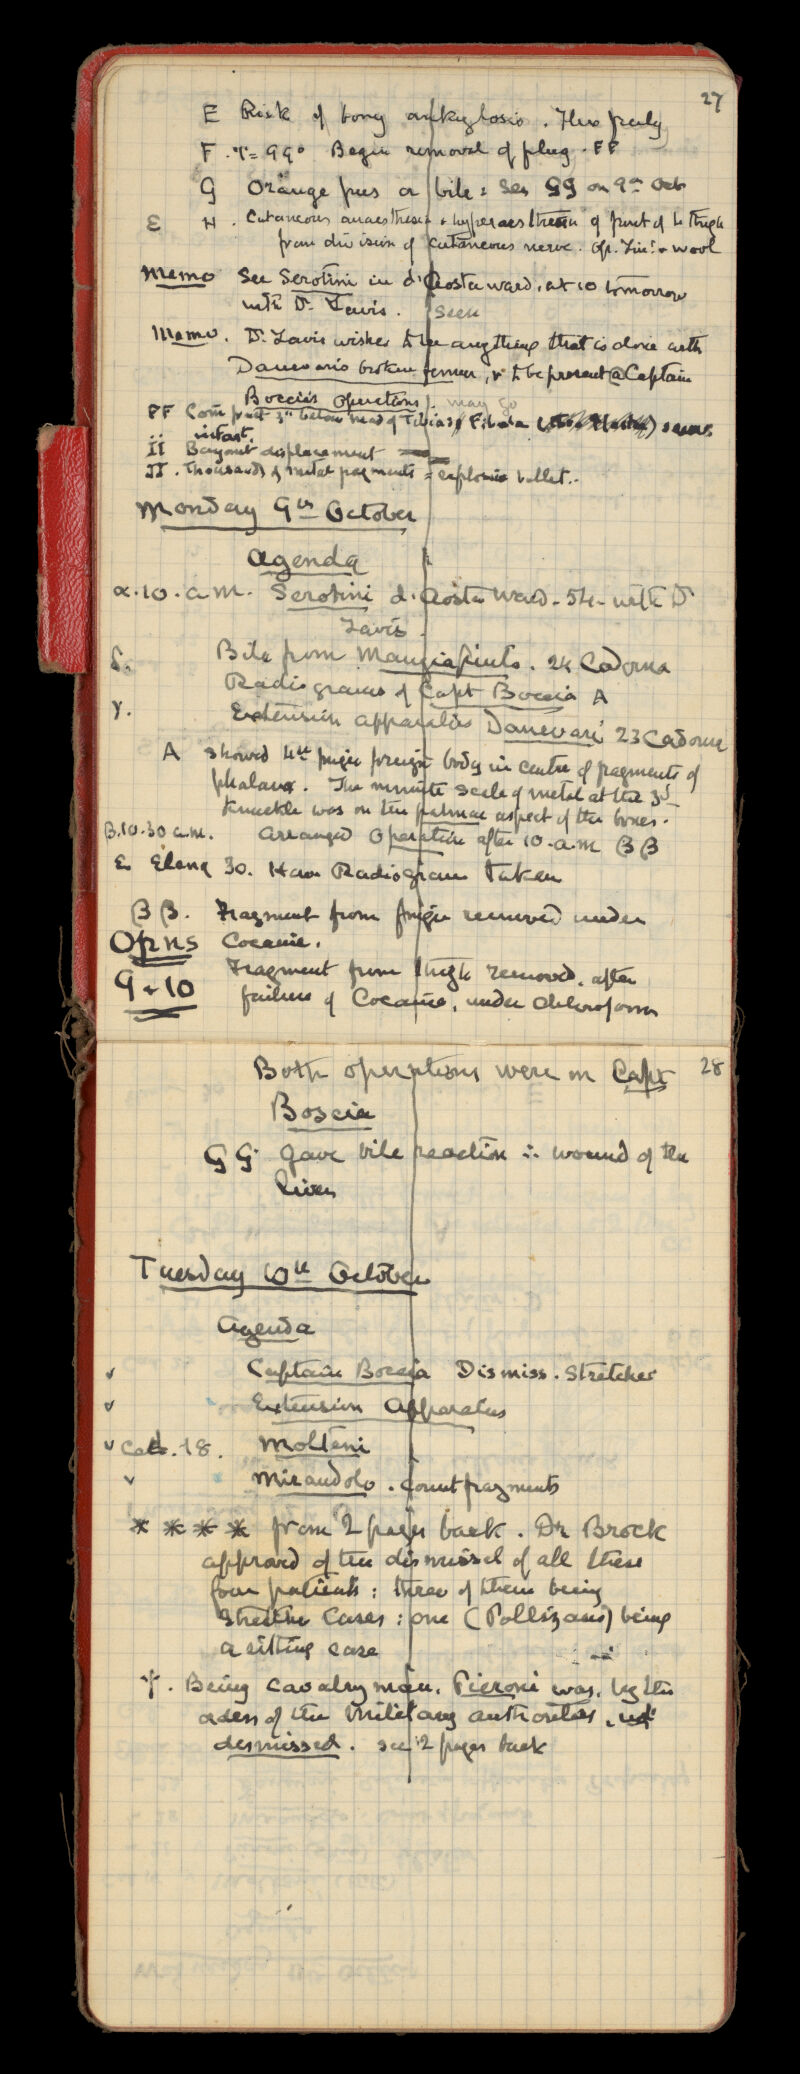 27
E Risk of bony ankylosis. Flex freely
F. T = 99° Begin removal of plug. FF
G Orange pus or bile: See GG on 9th Oct
E H. Cutaneous anaesthesia & hyperaesthesia of front of L. thigh
from division of cutaneous nerve. Op. Lint & wool
Memo See Serotini in d'Aosta ward, at 10 tomorrow
with Dr. Lavis. Seen
Memo. Dr. Lavis wishes to see anything that is done with
Danevaris broken femur, & to be present @ Captain
Boccia's Operations may go
FF Com fract 3" below head of Tibia; Fibula seems
intact.
II Bayonet displacement
II. Thousands of metal fragments = explosive bullet..
Monday 9th October
Agenda
α. 10. a.m. Serotini d'Aosta ward. 54. with Dr
Lavis.
δ. Bile from Mangiafinto. 24 Cadorna
Radiograms of Capt Boccia A
γ. Extension apparatus Danevari 23 Cadorna
A showed 4th finger foreign body in centre of fragments of
phalanx. The minute scale of metal at the 3d
knuckle was on the palmar aspect of the bones.
β. 10.30 a.m. Arranged Operation after 10. a.m ββ
ε. Elena 30. Have Radiogram taken
ββ. Fragment from finger removed under
Opns Cocaine.
9 & 10 Fragment from thigh removed, after
failure of Cocaine, under chloroform
28
Both operations were on Capt
Boscia
GG gave bile reaction ∴ wound of the
liver
Tuesday 10th October
Agenda
✓ Captain Boccia Dismiss. Stretcher
✓ Extension Apparatus
✓ Cad. 18. Molteni
✓ Mirandolo. Count fragments
* * * * from 2 pages back. Dr Brock
approved of the dismissal of all these
four patients: three of them being
Stretcher Cases: one (Pollizano) being
a sitting case
†. Being Cavalry man, Pieroni was, by the
orders of the Military authorities, not
dismissed. see 2 pages back